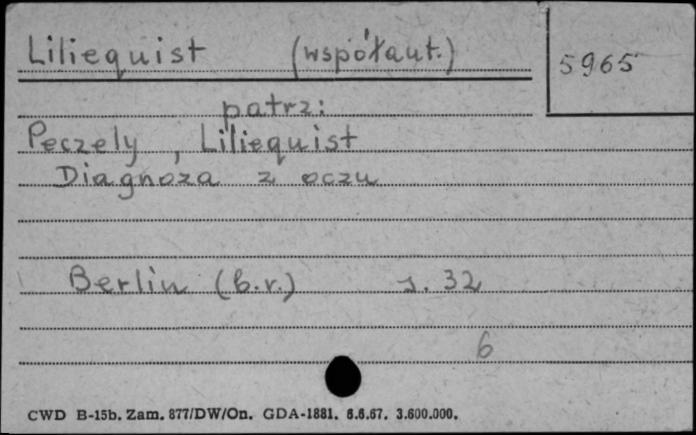 Liliequist (współaut.)
5965
patrz:
Peczely, Liliequist
Diagnoza z oczu
Berlin (b.r.) s. 32
6
CWD B-15b. Zam. 877/DW/On. GDA-1881. 6.6.67. 3.600.000.